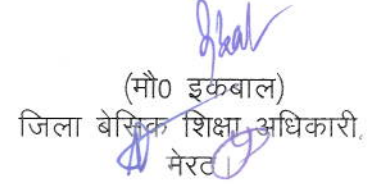 (मौ0 इकबाल)
जिला बेसिक शिक्षा अधिकारी,
मेरठ।